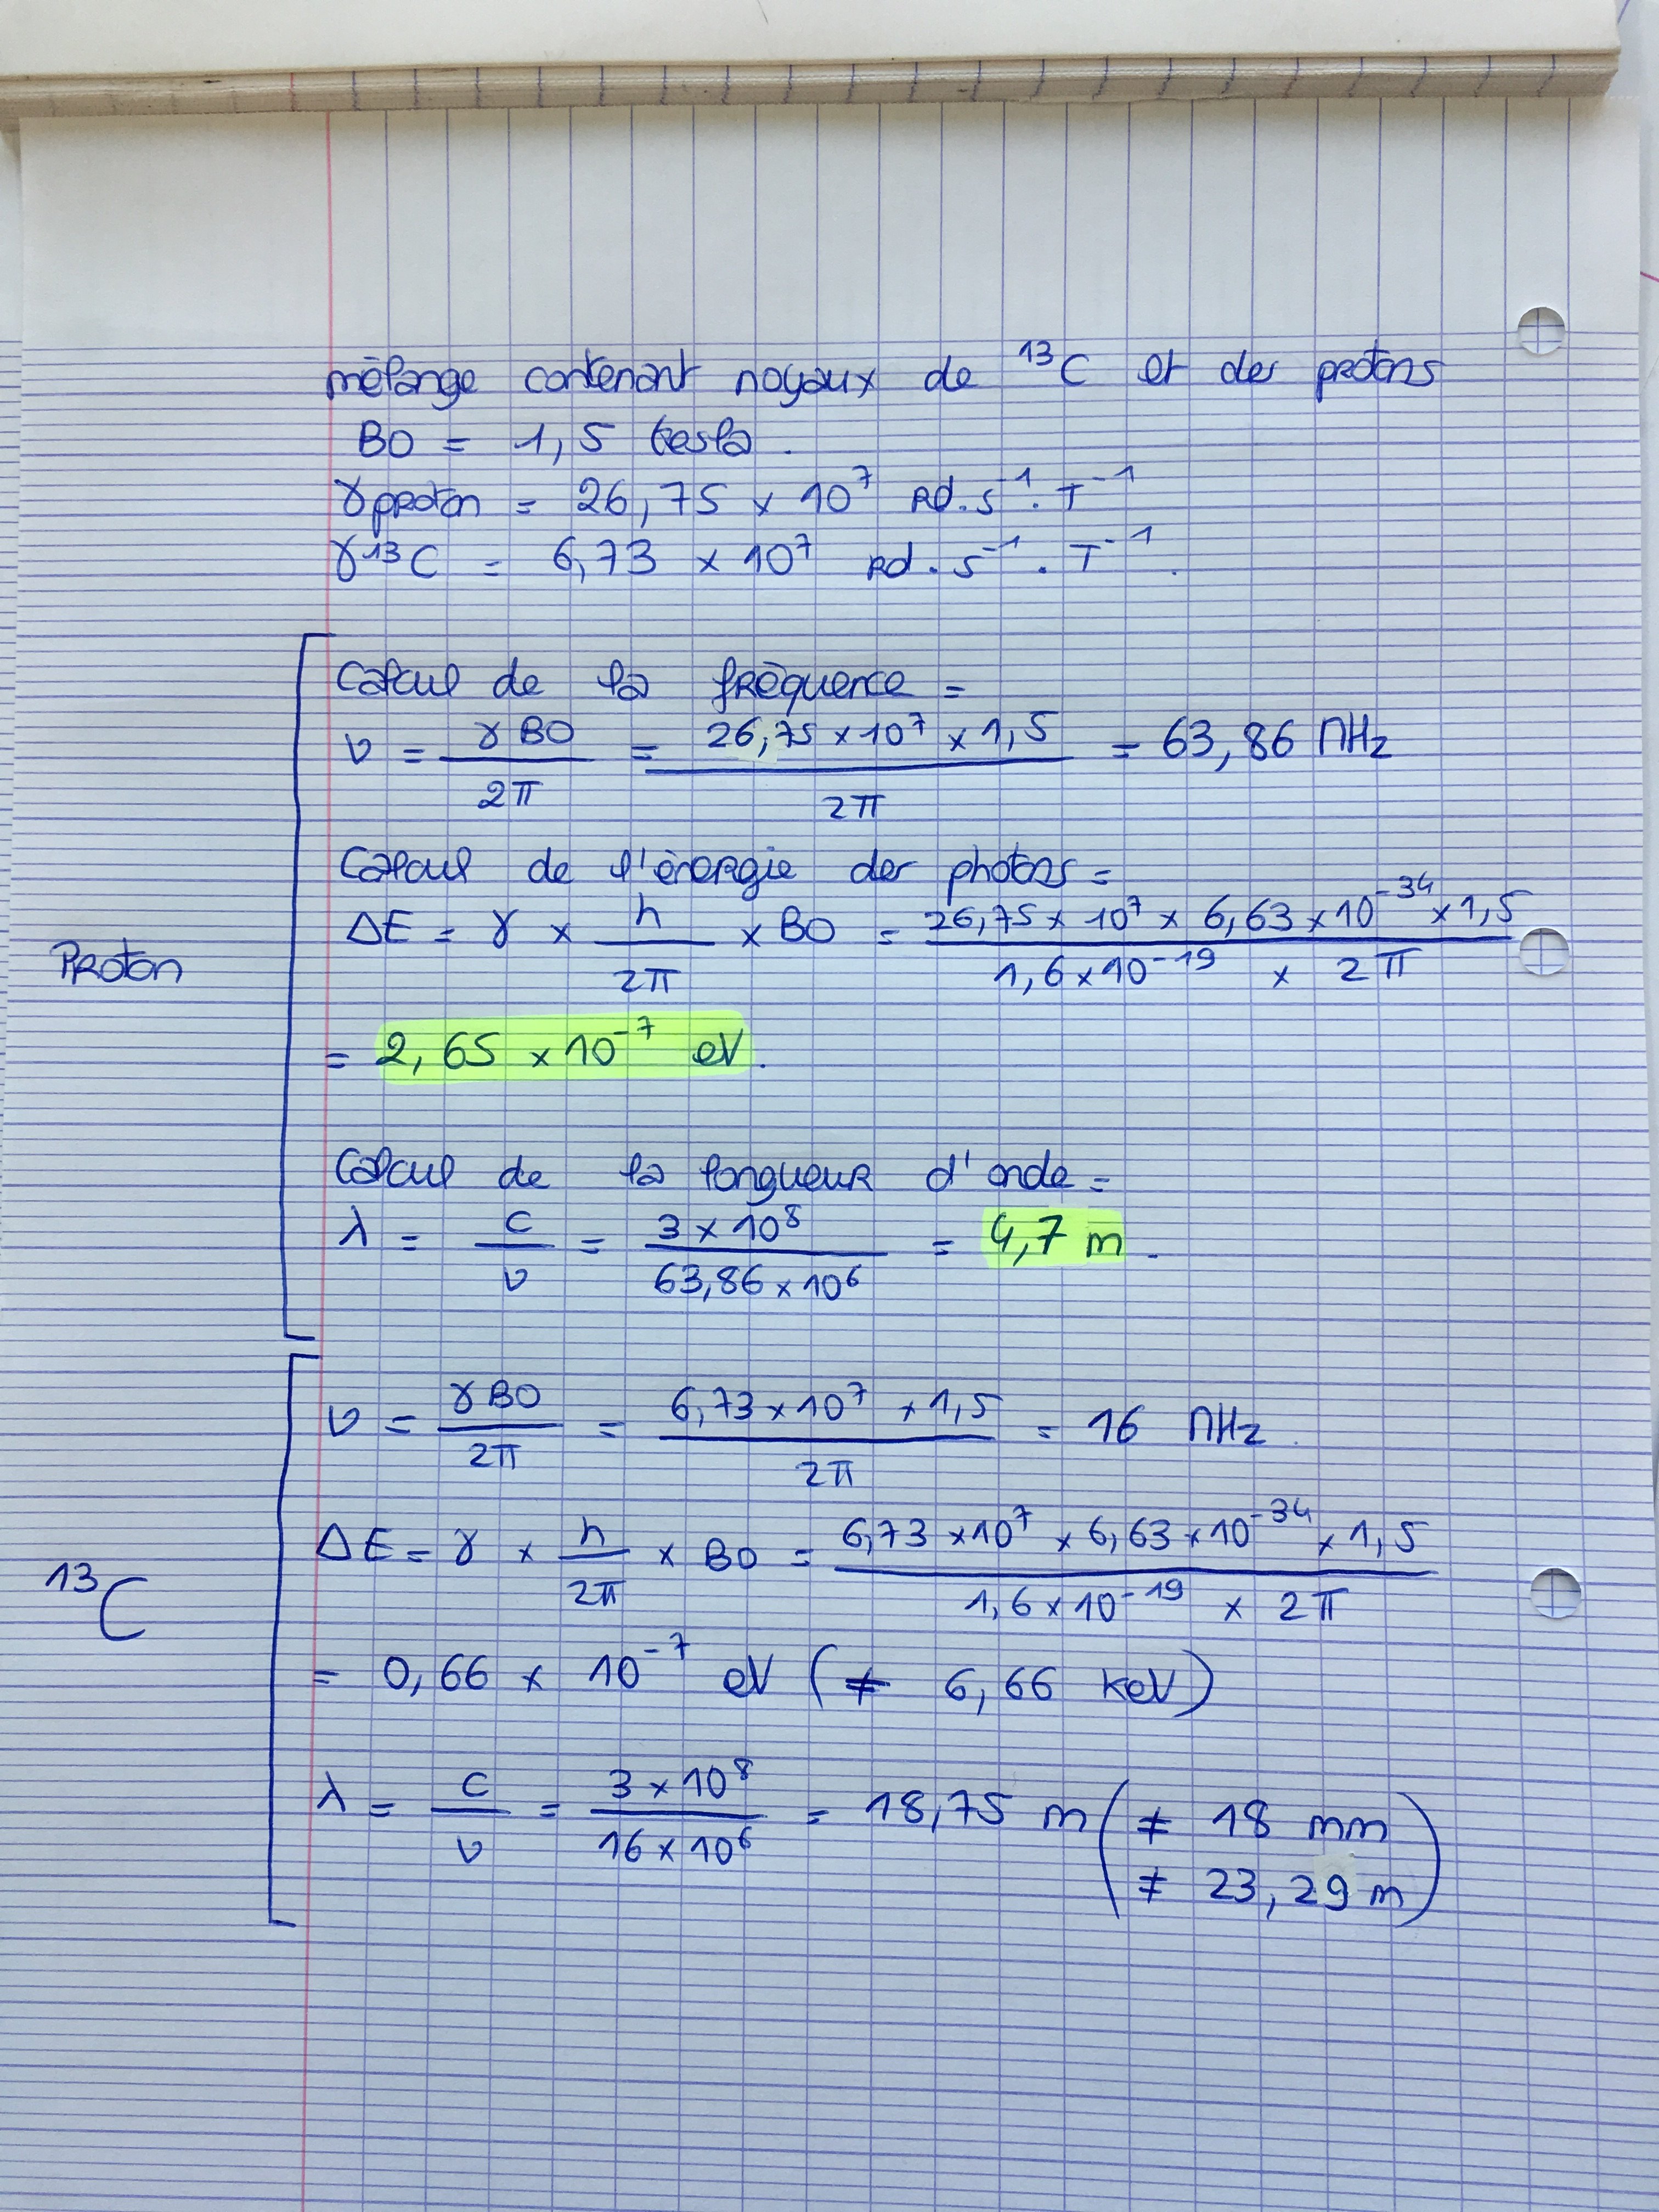 mélange contenant noyaux de ¹³C et des protons
B0 = 1,5 tesla.
γproton = 26,75 × 10⁷ Rd.s⁻¹.T⁻¹
γ¹³C = 6,73 × 10⁷ Rd.s⁻¹.T⁻¹.
Proton
Calcul de la fréquence =
ν = γB0 / 2π = 26,75 × 10⁷ × 1,5 / 2π = 63,86 MHz
Calcul de l'énergie des photons =
ΔE = γ × h / 2π × B0 = 26,75 × 10⁷ × 6,63 × 10⁻³⁴ × 1,5 / 1,6 × 10⁻¹⁹ × 2π
= 2,65 × 10⁻⁷ eV.
Calcul de la longueur d'onde =
λ = c / ν = 3 × 10⁸ / 63,86 × 10⁶ = 4,7 m.
¹³C
ν = γB0 / 2π = 6,73 × 10⁷ × 1,5 / 2π = 16 MHz.
ΔE = γ × h / 2π × B0 = 6,73 × 10⁷ × 6,63 × 10⁻³⁴ × 1,5 / 1,6 × 10⁻¹⁹ × 2π
= 0,66 × 10⁻⁷ eV (≠ 6,66 keV)
λ = c / ν = 3 × 10⁸ / 16 × 10⁶ = 18,75 m (≠ 18 mm
≠ 23,29 m)